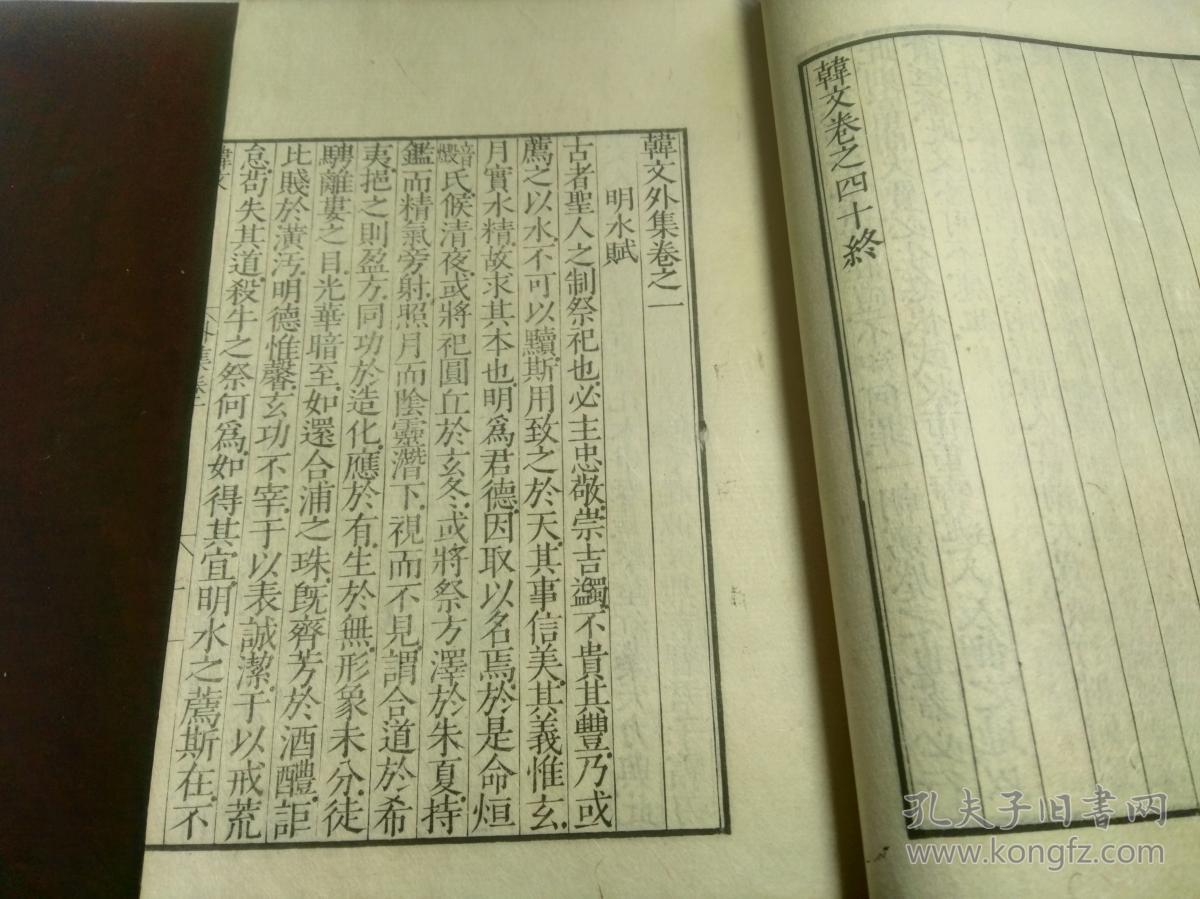 韓文卷之四十終
韓文外集卷之一
明水賦
古者聖人之制祭祀也必主忠敬崇吉蠲不貴其豐乃或
薦之以水不可以黷斯用致之於天其事信美其義惟玄
月實水精故求其本也明爲君德因取以名焉於是命烜
氏候清夜或將祀圓丘於玄冬或將祭方澤於朱夏持
鑑而精氣旁射照月而陰靈潛下視而不見謂合道於希
夷挹之則盈方同功於造化應於有生於無形象未分徒
騁離婁之目光華暗至如還合浦之珠既齊芳於酒醴詎
比賤於潢汙明德惟馨玄功不宰于以表誠潔于以戒荒
怠苟失其道殺牛之祭何爲如得其宜明水之薦斯在不
韓文
外集卷一
孔夫子旧书网
www.kongfz.com